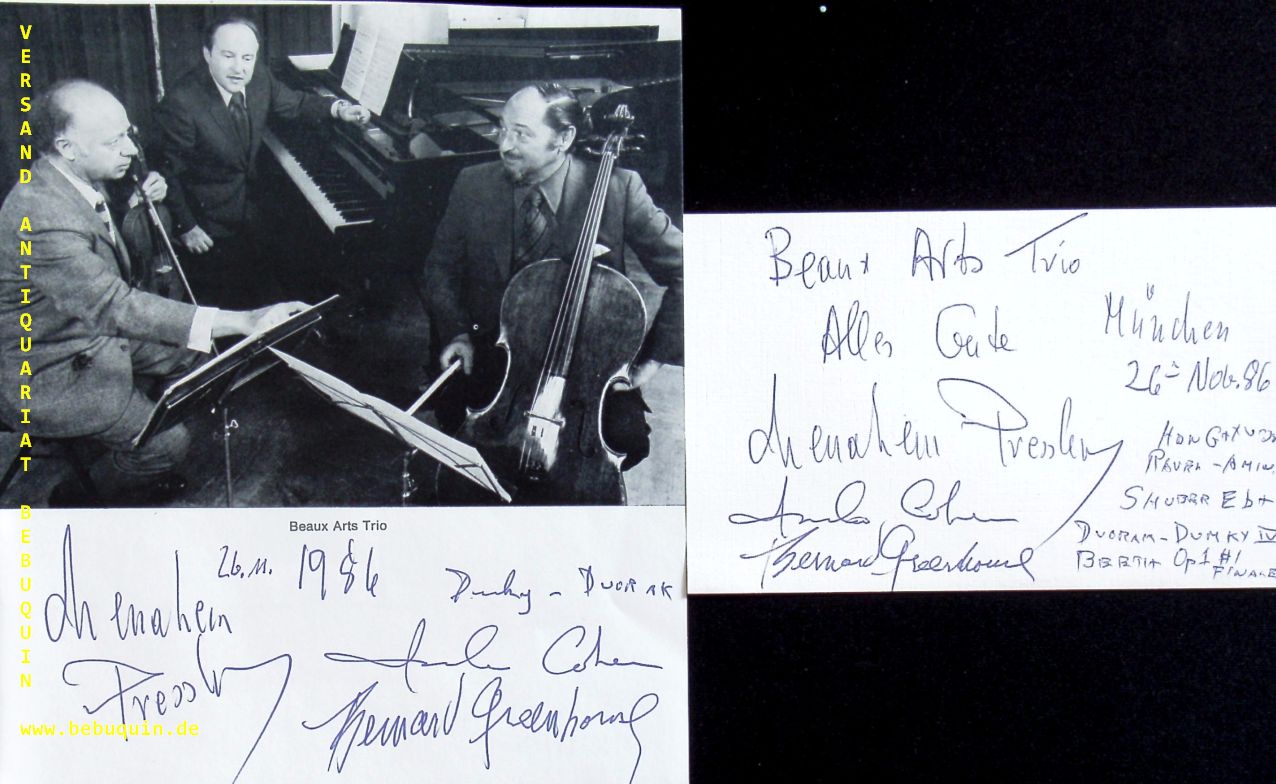 VERSAND ANTIQUARIAT BEBUQUIN
www.bebuquin.de
Beaux Arts Trio
26.11. 1986
Dumky - DVORAK
Menahem
Pressler
Isidore Cohen
Bernard Greenhouse
Beaux Arts Trio
Alles Gute
München
26 Nov. 86
Menahem Pressler
Isidore Cohen
Bernard Greenhouse
RAVEL - AMIN
SHUBER Eb
DVORAK - DUMKY IV
Op 1 #1
FINALE